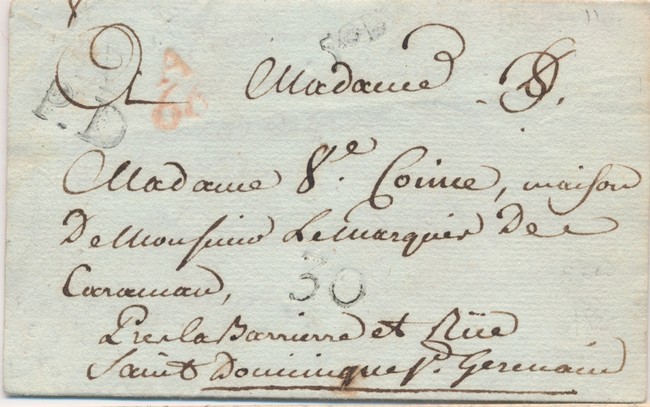 A Madame
P.D
Madame 8.e Coince, maison
De Monsieur Le Marquis De
Caraman,
30
Pres la Barrierre et Rüe
Saint Dominique f.d Germain